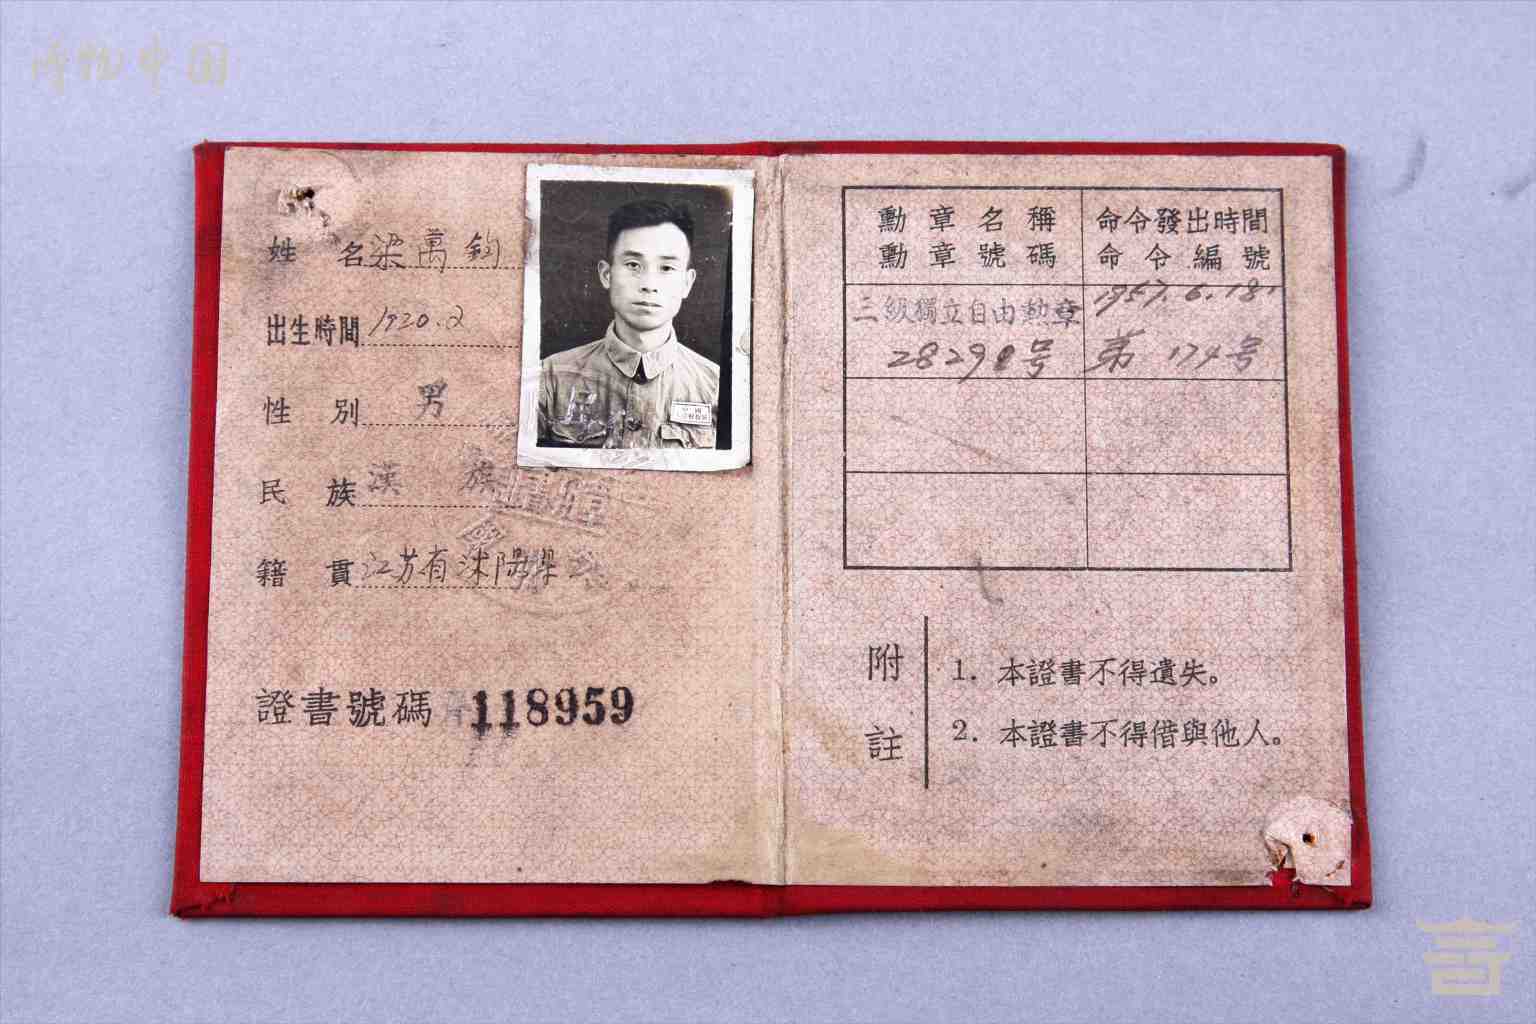 博物中国
姓 名 梁萬鈞
出生時間 1920.2
性 別 男
民 族 漢 族
籍 貫 江苏省沭陽縣
證書號碼 118959
勳章名稱 命令發出時間
勳章號碼 命令編號
三級獨立自由勳章 1957.6.18.
28290号 第174号
附註
1. 本證書不得遺失。
2. 本證書不得借與他人。